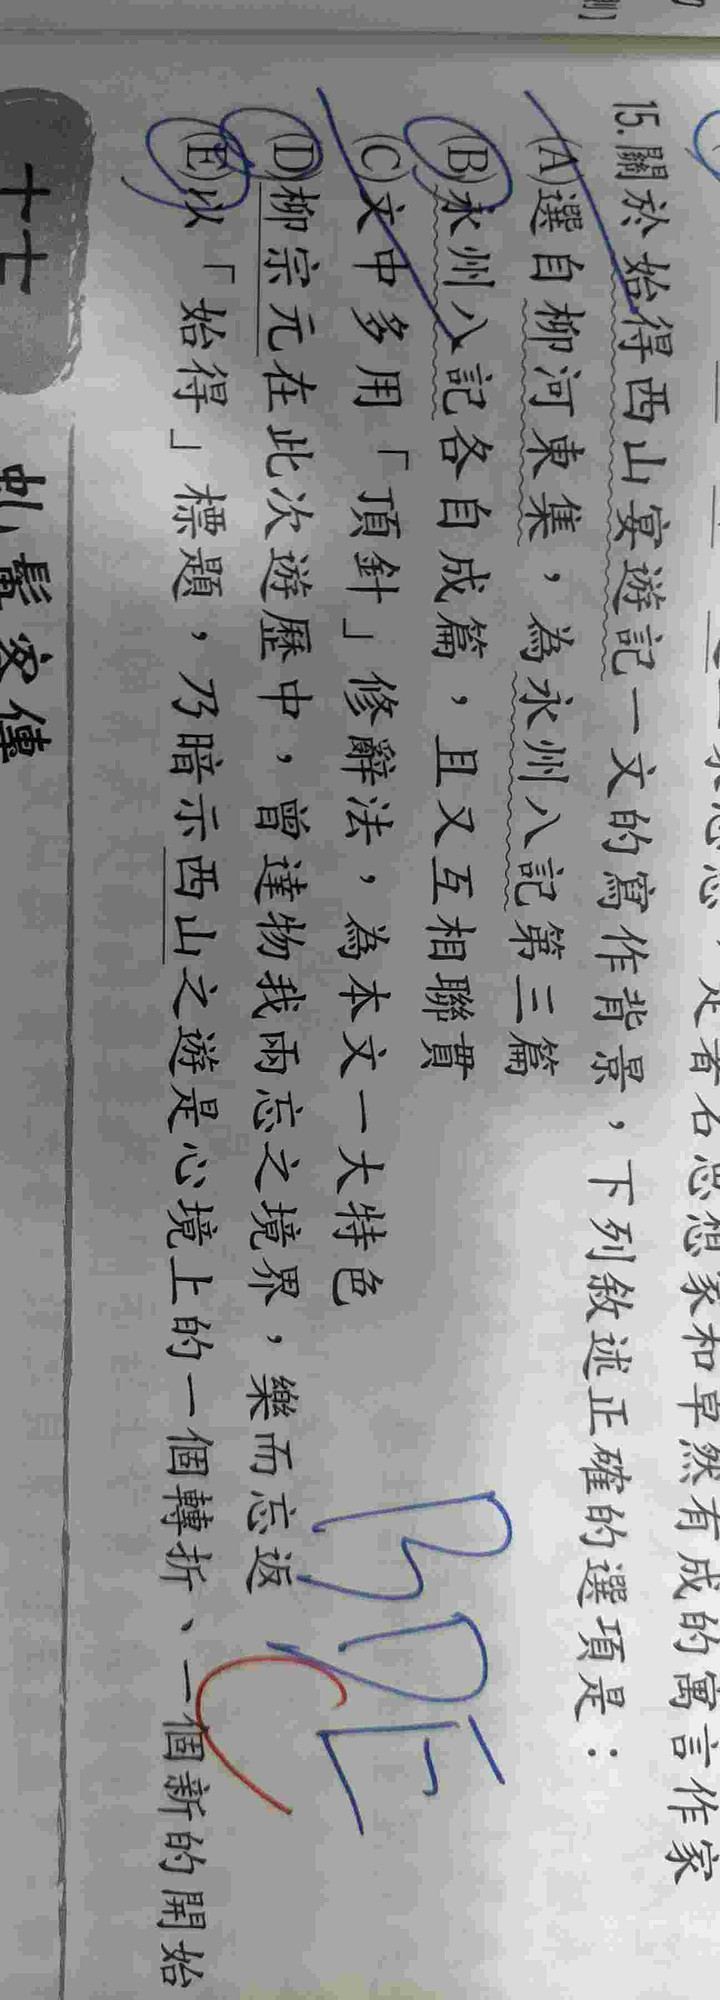 走者名思想家和卓然有成的寓言作家
15.關於始得西山宴遊記一文的寫作背景，下列敘述正確的選項是：
(A)選自柳河東集，為永州八記第三篇
(B)永州八記各自成篇，且又互相聯貫
(C)文中多用「頂針」修辭法，為本文一大特色
(D)柳宗元在此次遊歷中，曾達物我兩忘之境界，樂而忘返
(E)以「始得」標題，乃暗示西山之遊是心境上的一個轉折、一個新的開始
BDE
C
十七
虬髯客傳